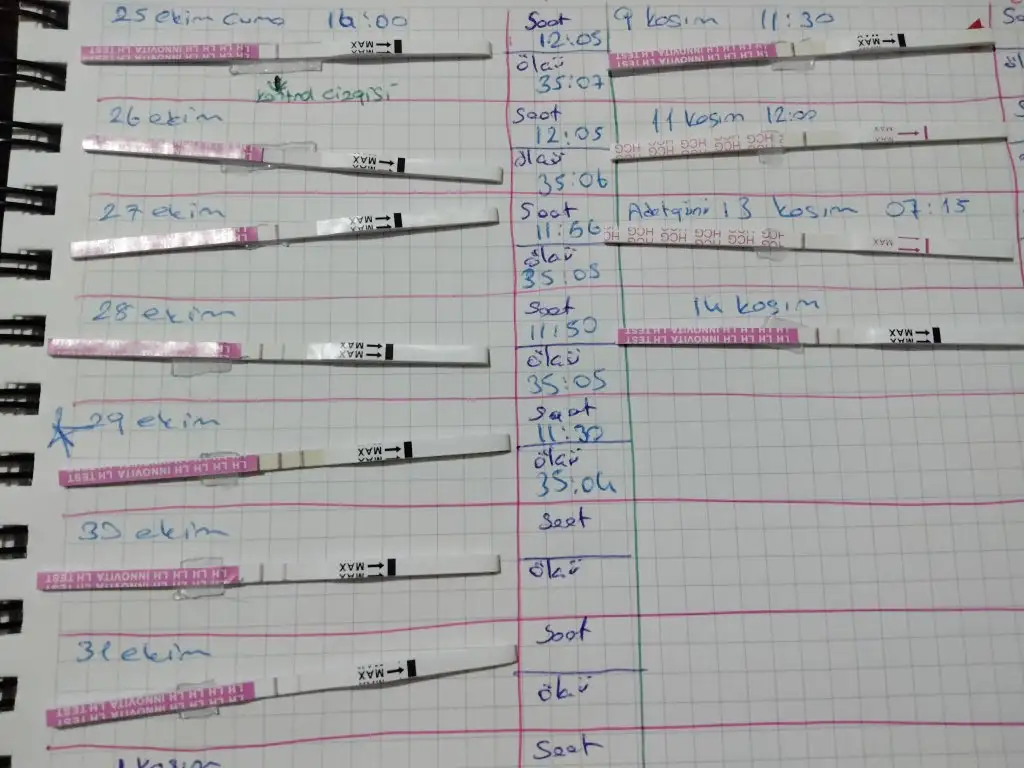 25 ekim cuma 16:00
LH LH LH LH INNOVITA LH TEST
MAX
kontrol çizgisi
Saat
12:05
ölçü
35:07
26 ekim
MAX
Saat
12:05
ölçü
35:06
27 ekim
MAX
Saat
11:56
ölçü
35:05
28 ekim
MAX
Saat
11:50
ölçü
35:05
29 ekim
LH LH LH LH INNOVITA LH TEST
MAX
Saat
11:30
ölçü
35:04
30 ekim
LH LH LH LH INNOVITA LH TEST
MAX
Saat
ölçü
31 ekim
LH LH LH LH INNOVITA LH TEST
MAX
Saat
ölçü
1 kasım
Saat
9 kasım 11:30
LH LH LH LH INNOVITA LH TEST
MAX
11 kasım 12:00
HCG HCG HCG HCG HCG HCG
MAX
Adet günü 13 kasım 07:15
HCG HCG HCG HCG HCG HCG
MAX
14 kasım
LH LH LH LH INNOVITA LH TEST
MAX